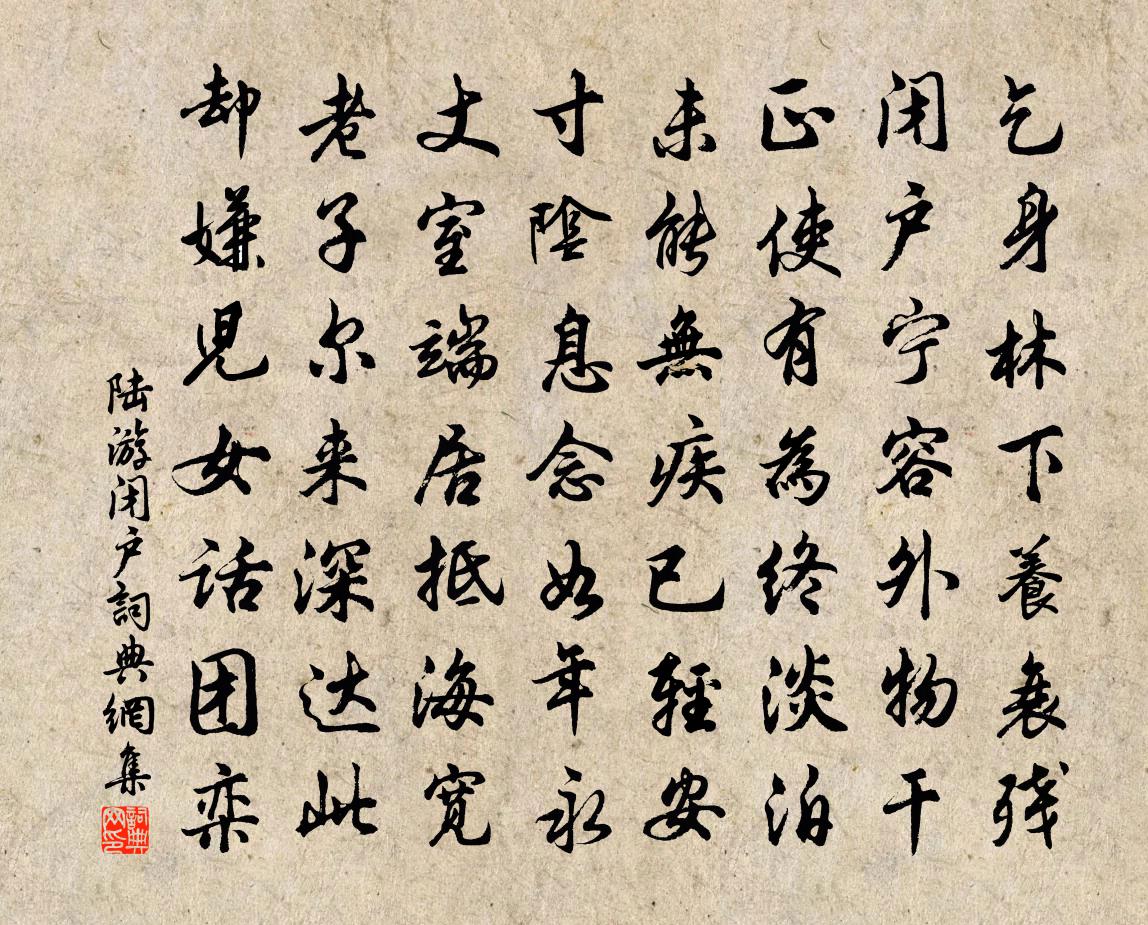 乞身林下養衰残
闭户宁容外物干
正使有為终淡泊
未能無疾已輕安
寸陰息念如年永
丈室端居抵海寬
老子尔来深达此
却嫌児女话团栾
陆游闭户詞典網集
詞典网印